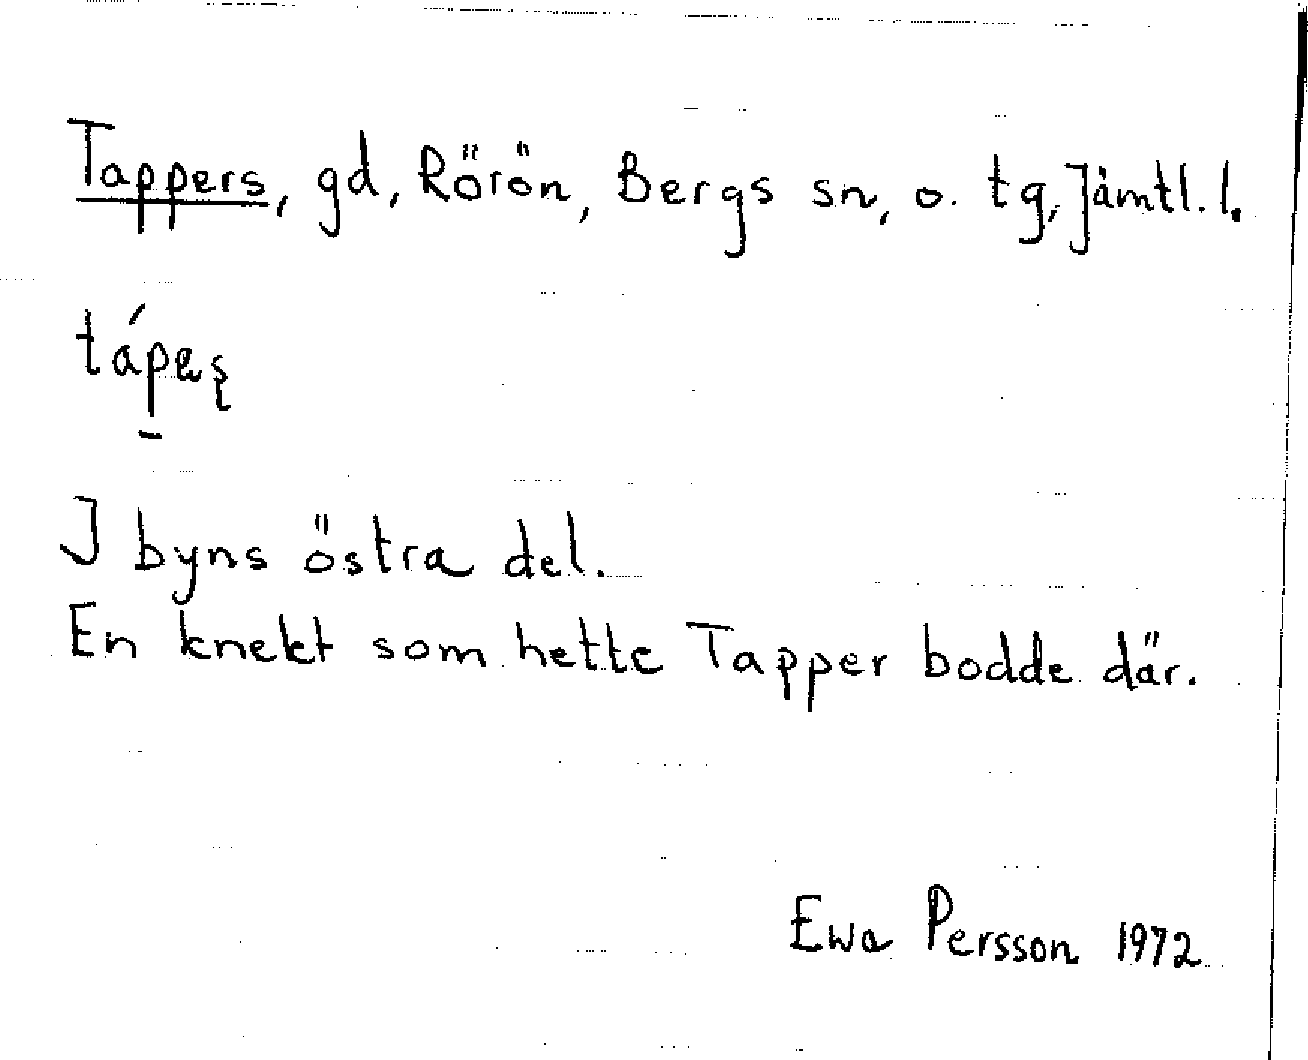 Tappers, gd, Rörön, Bergs sn, o. tg, Jämtl. l.
I byns östra del.
En knekt som hette Tapper bodde där.
Ewa Persson 1972